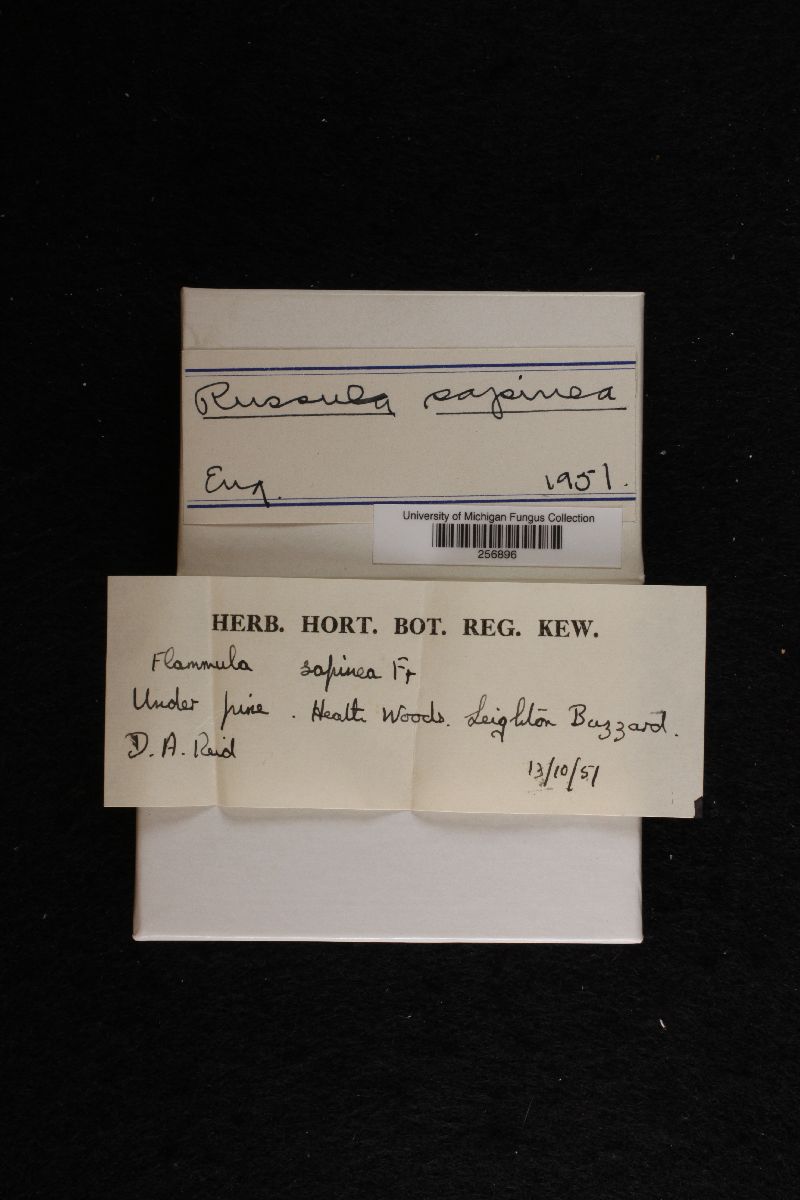 Russula sapinea
Eng. 1951.
University of Michigan Fungus Collection
256896
HERB. HORT. BOT. REG. KEW.
Flammula sapinea Fr
Under pine. Heath Woods. Leighton Buzzard.
D. A. Reid
13/10/51